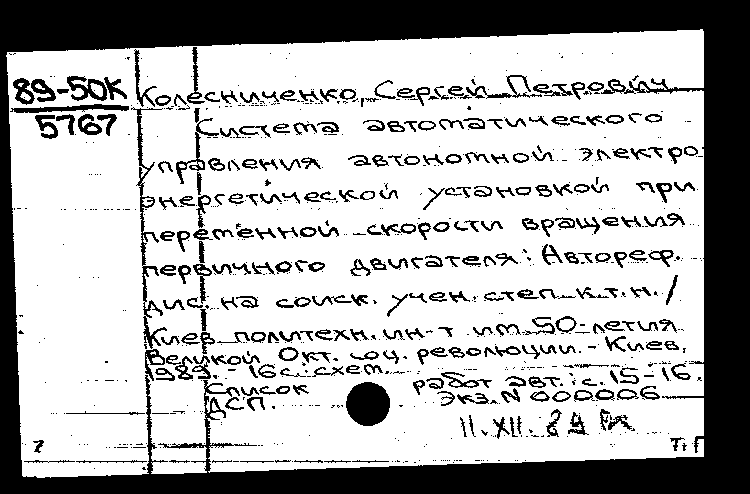 89-50К
5767
Колесниченко, Сергей Петрович
Система автоматического
управления автономной электро
энергетической установкой при
переменной скорости вращения
первичного двигателя: Автореф.
дис. на соиск. учен. степ. к.т.н. /
Киев. политехн. ин-т им. 50-летия
Великой Окт. соц. революции. - Киев,
1989. - 16 с.: схем.
Список работ авт.: с. 15-16.
ДСП. Экз. N 000006
11.XII.89